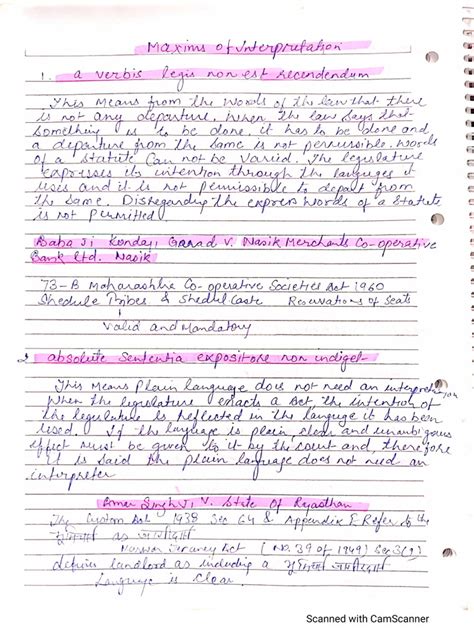 Maxims of Interpretation
1. a verbis legis non est recendendum
This Means from the words of the law that there
is not any departure. When the law says that
something is to be done, it has to be done and
a departure from the same is not permissible. Words
of a Statute Can not be Varied. The legislature
expresses its intention through the languages it
uses and it is not permissible to depart from
the Same. Disregarding the express Words of a Statute
is not permitted
Baba Ji Kondaji Garad V. Nasik Merchants Co-operative
Bank Ltd. Nasik
73-B Maharashtra Co-operative Societies Act 1960
Shedule Tribes & Shedul Caste Reservations of Seats
Valid and Mandatory
2. absolute Sententia expositore non indiget
This Means Plain language does not need an interpretation
When the legislature enacts a Act the intention of
the legislature is reflected in the language it has been
used. If the language is plain, clear and unambiguous
effect must be given to it by the court and, therefore
it is said the plain language does not need an
interpreter
Amar Singh Ji V. State of Rajasthan
The Custom Act 1938 Sec 64 & Appendix E Refer to the
as
Act (No. 39 of 1949) Sec 3(1)
defines landlord as including a
Language is Clear.
Scanned with CamScanner